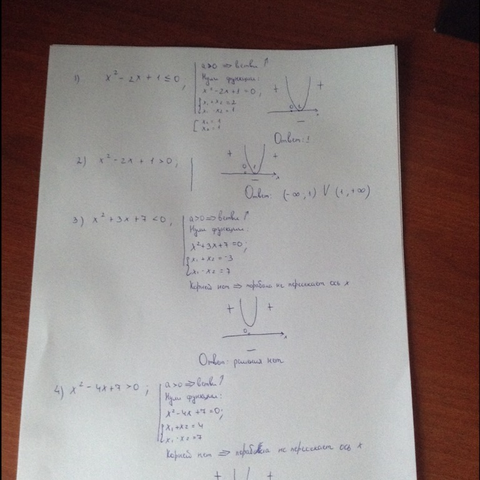 1) x² - 2x + 1 ≤ 0;
a>0 ⇒ ветви ↑
Нули функции:
x² - 2x + 1 = 0;
x₁ + x₂ = 2
x₁ · x₂ = 1
x₁ = 1
x₂ = 1
+ +
−
Ответ: 1
2) x² - 2x + 1 > 0;
+ +
0 1 x
−
Ответ: (-∞, 1) V (1, +∞)
3) x² + 3x + 7 < 0;
a>0 ⇒ ветви ↑
Нули функции:
x² + 3x + 7 = 0;
x₁ + x₂ = -3
x₁ · x₂ = 7
Корней нет ⇒ парабола не пересекает ось x
+ +
0 x
−
Ответ: решения нет
4) x² - 4x + 7 > 0;
a>0 ⇒ ветви ↑
Нули функции:
x² - 4x + 7 = 0;
x₁ + x₂ = 4
x₁ · x₂ = 7
Корней нет ⇒ парабола не пересекает ось x
+ +